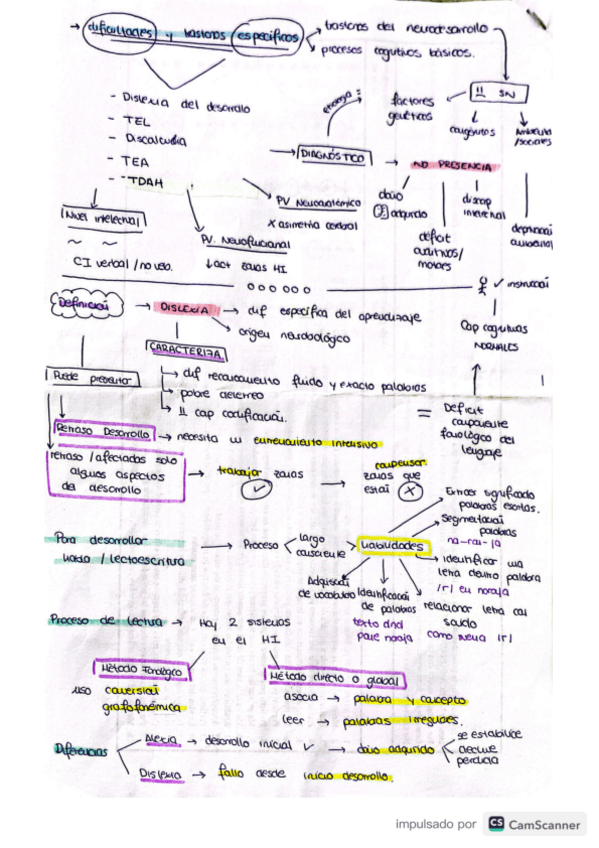 → dificultades y trastornos específicos
→ trastornos del neurodesarrollo
→ procesos cognitivos básicos.
- Dislexia del desarrollo
- TEL
- Discalculia
- TEA
- TDAH
→ DIAGNÓSTICO
factores genéticos
SN
→ NO PRESENCIA
daño adquirido
déficit auditivos/motores
discap intelectual
Nivel intelectual
CI verbal / no verb.
PV. Neurofuncional
↓act zonas HI
PV Neuroanatómico
x asimetría cerebral
✓ instrucción
Cap cognitivas NORMALES
Definición → DISLEXIA → dif específica del aprendizaje
→ origen neurobiológico
CARACTERIZA
→ dif reconocimiento fluido y exacto palabras
→ pobre deletreo
→ cap codificación.
= Déficit componente fonológico del lenguaje
Puede presentar
Retraso Desarrollo → necesita un entrenamiento intensivo
retraso/afectadas solo algunos aspectos del desarrollo → trabajar zonas ✓ → compensar zonas que están x
Para desarrollar
/ lectoescritura → Proceso
largo
consciente
Habilidades
Extraer significado palabras escritas.
Segmentación palabras
na-ran-ja
→ identificar una letra dentro palabra
/r/ en naranja
relacionar letra con sonido
como suena /r/
Identificación de palabras
Adquisición de vocabulario
Proceso de lectura → Hay 2 sistemas en el HI
Método Fonológico
uso conversión grafofonémica
Método directo o global
asocia → palabra y concepto
leer → palabras irregulares.
Diferencias
Alexia → desarrollo inicial ✓ → daño adquirido
se establece
declive
pérdida
Dislexia → fallo desde inicio desarrollo.
impulsado por CS CamScanner